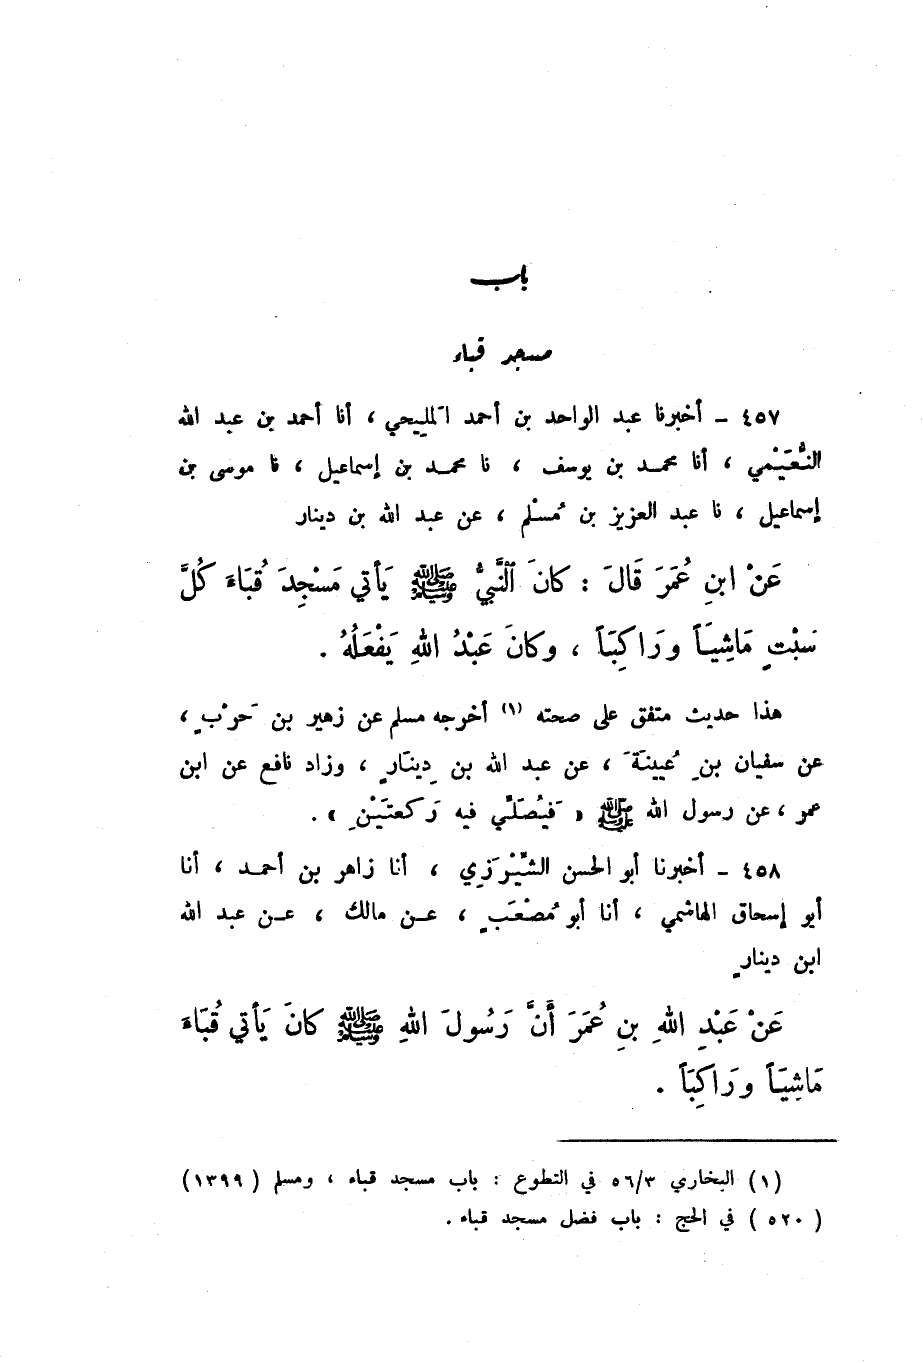 باب
مسجد قباء
٤٥٧ - أخبرنا عبد الواحد بن أحمد المليحي ، أنا أحمد بن عبد الله
النُّعَيْمي ، أنا محمد بن يوسف ، نا محمد بن إسماعيل ، نا موسى بن
إسماعيل ، نا عبد العزيز بن مُسْلم ، عن عبد الله بن دينار
عَنْ ابنِ عُمَرَ قَالَ : كانَ ٱلنَّبيُّ ﷺ يَأتي مَسْجِدَ قُبَاءَ كُلَّ
سَبْتٍ مَاشِيَاً ورَاكِبَاً ، وكانَ عَبْدُ اللهِ يَفْعَلُهُ .
هذا حديث متفق على صحته (١) أخرجه مسلم عن زهير بن حَرْبٍ ،
عن سفيان بنِ عُيينةَ ، عن عبد الله بن دِينَارٍ ، وزاد نافع عن ابن
عمر ، عن رسول الله ﷺ « فَيُصَلِّي فيه رَكعتَيْنِ » .
٤٥٨ - أخبرنا أبو الحسن الشِّيْرَزي ، أنا زاهر بن أحمد ، أنا
أبو إسحاق الهاشمي ، أنا أبو مُصْعَبٍ ، عن مالك ، عن عبد الله
ابن دينارٍ
عَنْ عَبْدِ اللهِ بنِ عُمَرَ أَنَّ رَسُولَ اللهِ ﷺ كانَ يَأتي قُبَاءَ
مَاشِيَاً ورَاكِبَاً .
(١) البخاري ٥٦/٣ في التطوع : باب مسجد قباء ، ومسلم (١٣٩٩)
(٥٢٠) في الحج : باب فضل مسجد قباء .